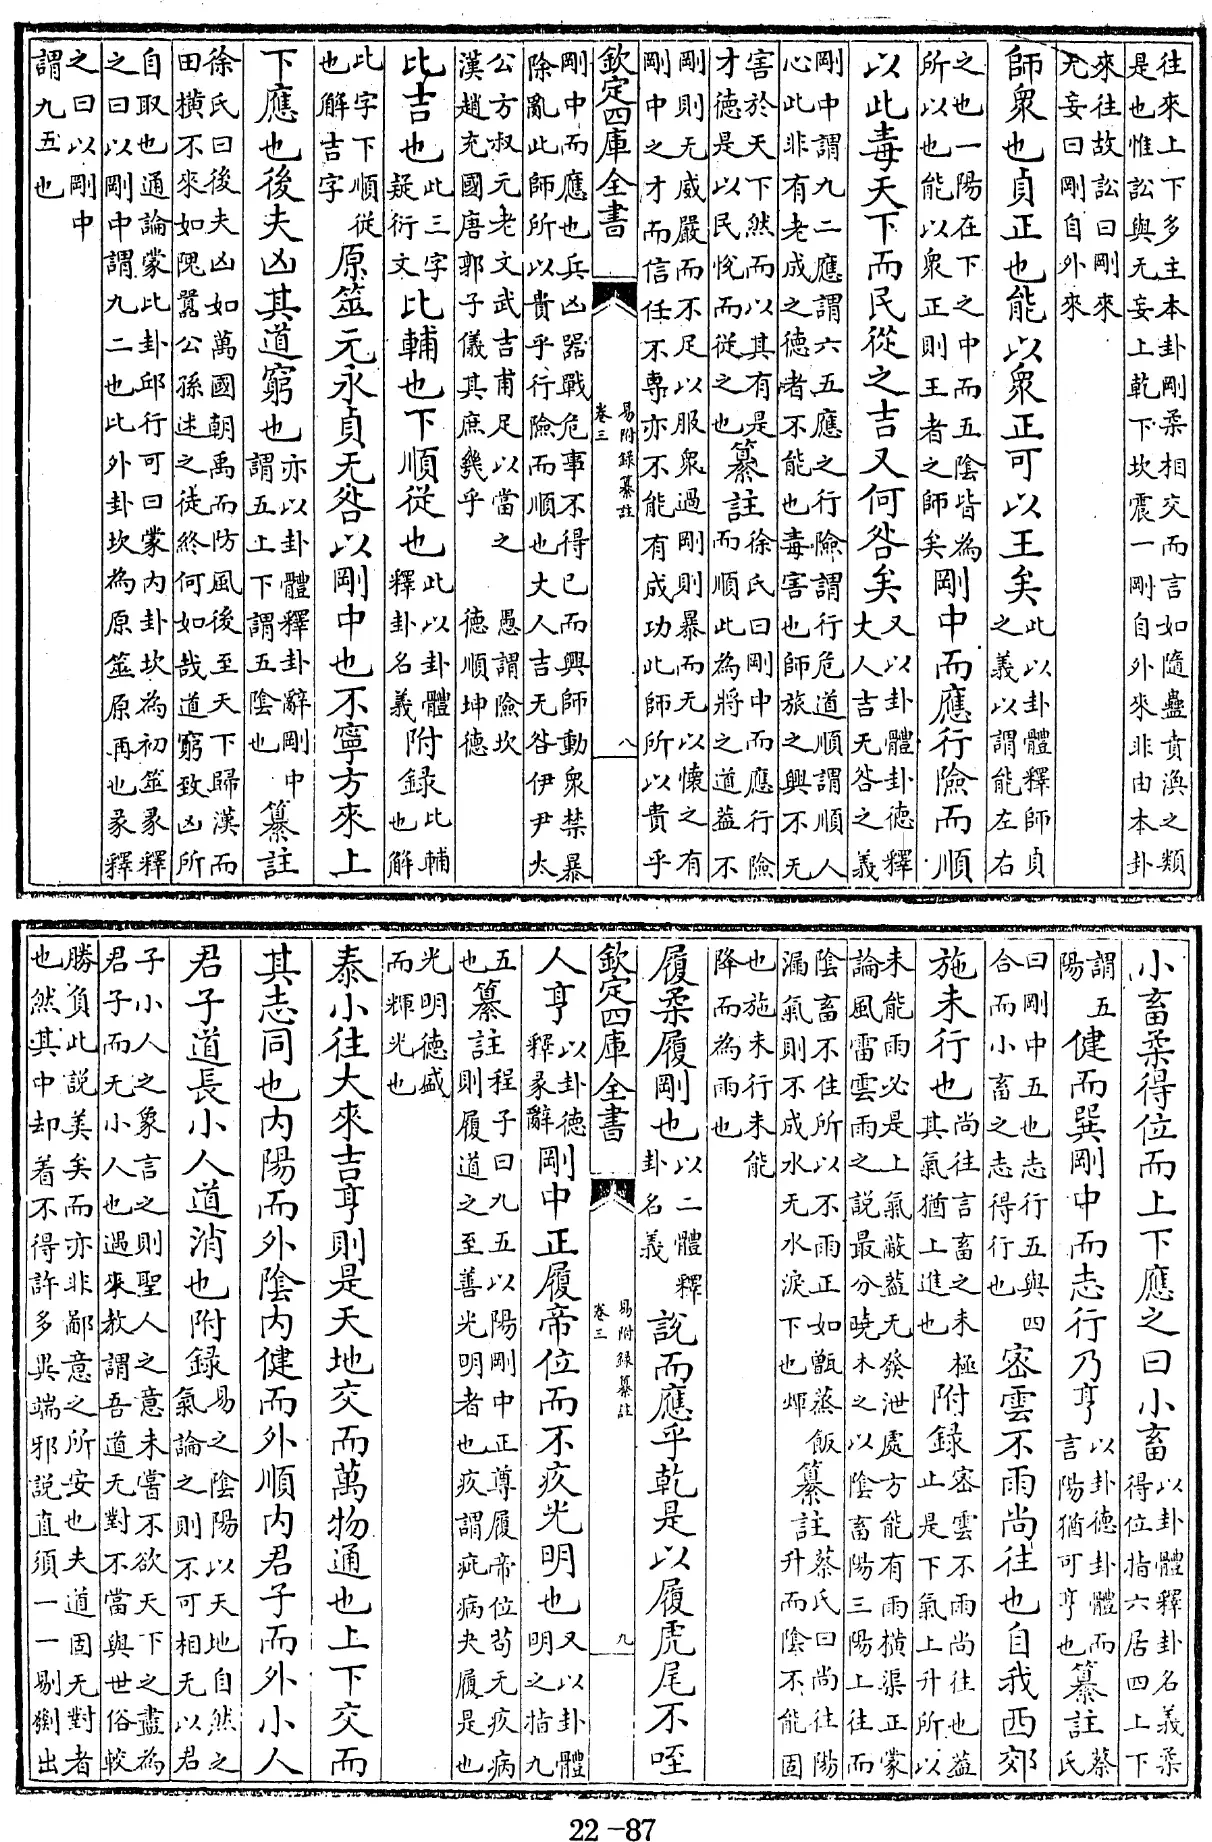 往來上下多主本卦剛柔相交而言如隨蠱賁渙之類
是也惟訟與无妄上乾下坎震一剛自外來非由本卦
來往故訟曰剛來
无妄曰剛自外來
師衆也貞正也能以衆正可以王矣此以卦體釋師貞之義以謂能左右
之也一陽在下之中而五陰皆為所以也能以衆正則王者之師矣剛中而應行險而順
以此毒天下而民從之吉又何咎矣又以卦體卦德釋丈人吉无咎之義
剛中謂九二應謂六五應之行險謂行危道順謂順人
心此非有老成之德者不能也毒害也師旅之興不无
害於天下然而以其有是才德是以民恱而從之也纂註徐氏曰剛中而應行險而順此為將之道葢不
剛則无威嚴而不足以服衆過剛則暴而无以懷之有
剛中之才而信任不專亦不能有成功此師所以貴乎
欽定四庫全書 易附録纂註 卷三 八
剛中而應也兵凶器戰危事不得已而興師動衆禁暴
除亂此師所以貴乎行險而順也丈人吉无咎伊尹太
公方叔元老文武吉甫足以當之漢趙充國唐郭子儀其庶幾乎 愚謂險坎德順坤德
比吉也此三字疑衍文比輔也下順從也此以卦體釋卦名義附録比輔也解
比字下順從也解吉字原筮元永貞无咎以剛中也不寧方來上
下應也後夫凶其道窮也亦以卦體釋卦辭剛中謂五上下謂五陰也纂註
徐氏曰後夫凶如萬國朝禹而防風後至天下歸漢而
田橫不來如隗囂公孫述之徒終何如哉道窮致凶所
自取也通論蒙比卦邱行可曰蒙内卦坎為初筮彖釋
之曰以剛中謂九二也比外卦坎為原筮原再也彖釋
之曰以剛中
謂九五也
小畜柔得位而上下應之曰小畜以卦體釋卦名義柔得位指六居四上下
謂五陽健而巽剛中而志行乃亨以卦德卦體而言陽猶可亨也纂註蔡氏
曰剛中五也志行五與四合而小畜之志得行也密雲不雨尚往也自我西郊
施未行也尚往言畜之未極其氣猶上進也附録密雲不雨尚往也葢止是下氣上升所以
未能雨必是上氣蔽葢无發泄處方能有雨橫渠正蒙
論風雷雲雨之說最分曉木之以陰畜陽三陽上往而
陰畜不住所以不雨正如甑蒸飯漏氣則不成水无水淚下也煇纂註蔡氏曰尚往陽升而陰不能固
也施未行未能
降而為雨也
履柔履剛也以二體釋卦名義說而應乎乾是以履虎尾不咥
欽定四庫全書 易附録纂註 卷三 九
人亨以卦德釋彖辭剛中正履帝位而不疚光明也又以卦體明之指九
五也纂註程子曰九五以陽剛中正尊履帝位苟无疚病則履道之至善光明者也疚謂疵病夬履是也
光明德盛
而輝光也
泰小往大來吉亨則是天地交而萬物通也上下交而
其志同也内陽而外陰内健而外順内君子而外小人
君子道長小人道消也附録易之陰陽以天地自然之氣論之則不可相无以君
子小人之象言之則聖人之意未嘗不欲天下之盡為
君子而无小人也遇來教謂吾道无對不當與世俗較
勝負此說美矣而亦非鄙意之所安也夫道固无對者
也然其中却着不得許多異端邪說直須一一剔撥出
22-87